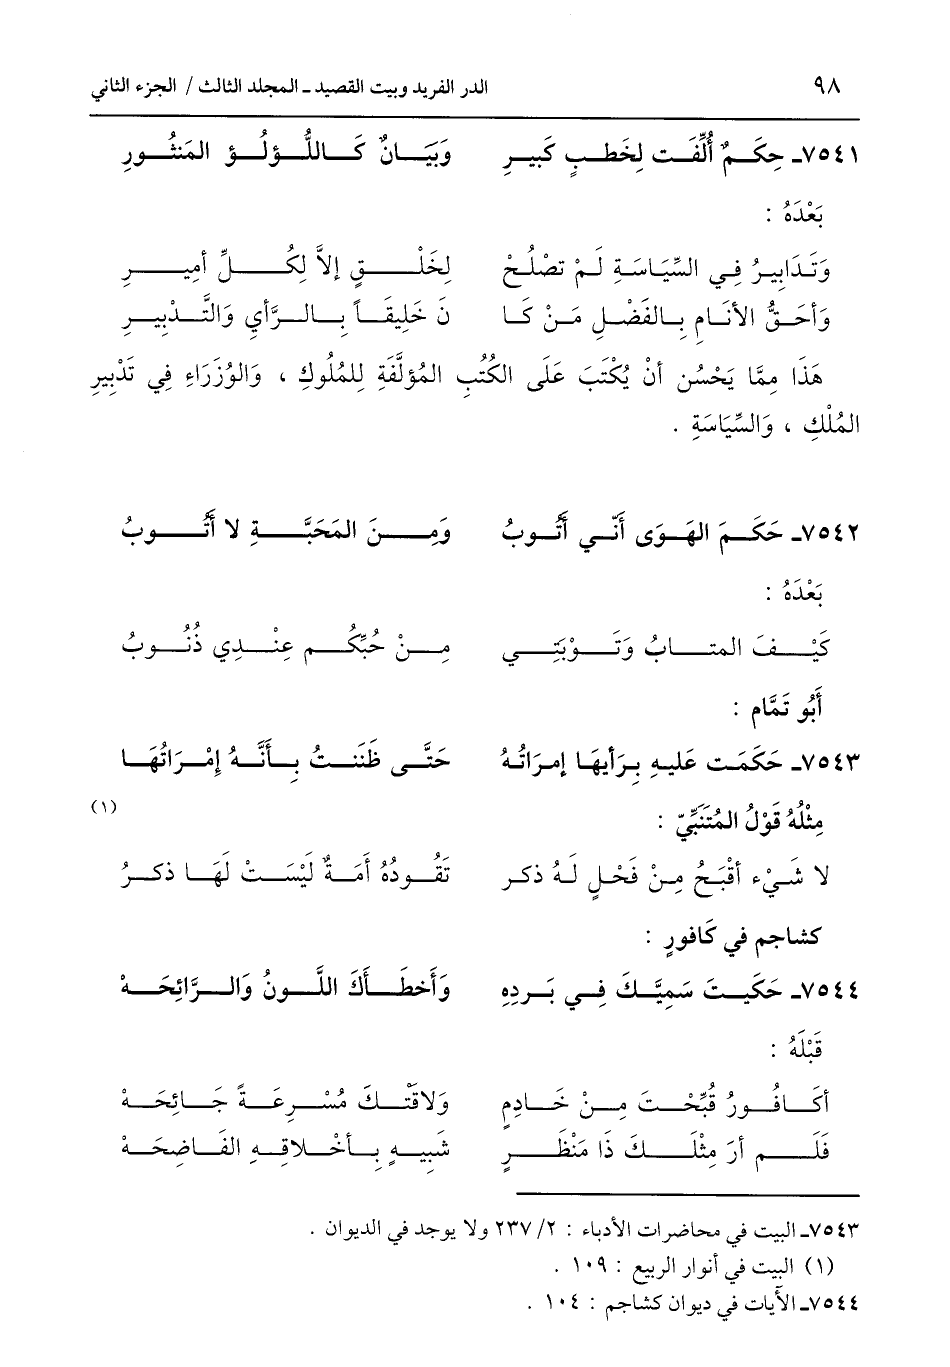 ٩٨ الدر الفريد وبيت القصيد ـ المجلد الثالث / الجزء الثاني
٧٥٤١ـ حِكَمٌ أُلِّفَت لِخَطبٍ كَبيرِ وَبَيَانٌ كَاللُّؤلُؤ المَنثُورِ
بَعْدَهُ :
وَتَدَابِيرُ فِي السِّيَاسَةِ لَمْ تصْلُحْ لِخَلْقٍ إلاَّ لِكُلِّ أميرِ
وَأحَقُّ الأنَامِ بِالفَضْلِ مَنْ كَا نَ خَلِيقَاً بِالرَّأي وَالتَّدْبِيرِ
هَذَا مِمَّا يَحْسُن أنْ يُكْتَبَ عَلَى الكُتُبِ المُؤلَّفَةِ لِلمُلُوكِ ، وَالوُزَرَاءِ فِي تَدْبِيرِ
المُلْكِ ، وَالسِّيَاسَةِ .
٧٥٤٢ـ حَكَمَ الهَوَى أَنّي أَتُوبُ وَمِنَ المَحَبَّةِ لا أَتُوبُ
بَعْدَهُ :
كَيْفَ المتابُ وَتَوْبَتِي مِنْ حُبِّكُم عِنْدِي ذُنُوبُ
أَبُو تَمَّام :
٧٥٤٣ـ حَكَمَت عَليهِ بِرَأيهَا إمرَاتُهُ حَتَّى ظَنَنتُ بِأَنَّهُ إمْرَاتُهَا
مِثْلُهُ قَوْلُ المُتَنَبِّيّ : (١)
لا شَيْء أقْبَحُ مِنْ فَحْلٍ لَهُ ذكر تَقُودُهُ أَمَةٌ لَيْسَتْ لَهَا ذكرُ
كشاجم في كَافورٍ :
٧٥٤٤ـ حَكَيتَ سَمِيَّكَ فِي بَردِهِ وَأَخطَأَكَ اللَّونُ وَالرَّائِحَهْ
قَبْلَهُ :
أكَافُورُ قُبِّحْتَ مِنْ خَادِمٍ وَلاقَتْكَ مُسْرِعَةً جَائِحَهْ
فَلَم أرَ مِثْلَكَ ذَا مَنْظَرٍ شَبِيهٍ بِأخْلاقِهِ الفَاضِحَهْ
٧٥٤٣ـ البيت في محاضرات الأدباء : ٢/ ٢٣٧ ولا يوجد في الديوان .
(١) البيت في أنوار الربيع : ١٠٩ .
٧٥٤٤ـ الأيات في ديوان كشاجم : ١٠٤ .